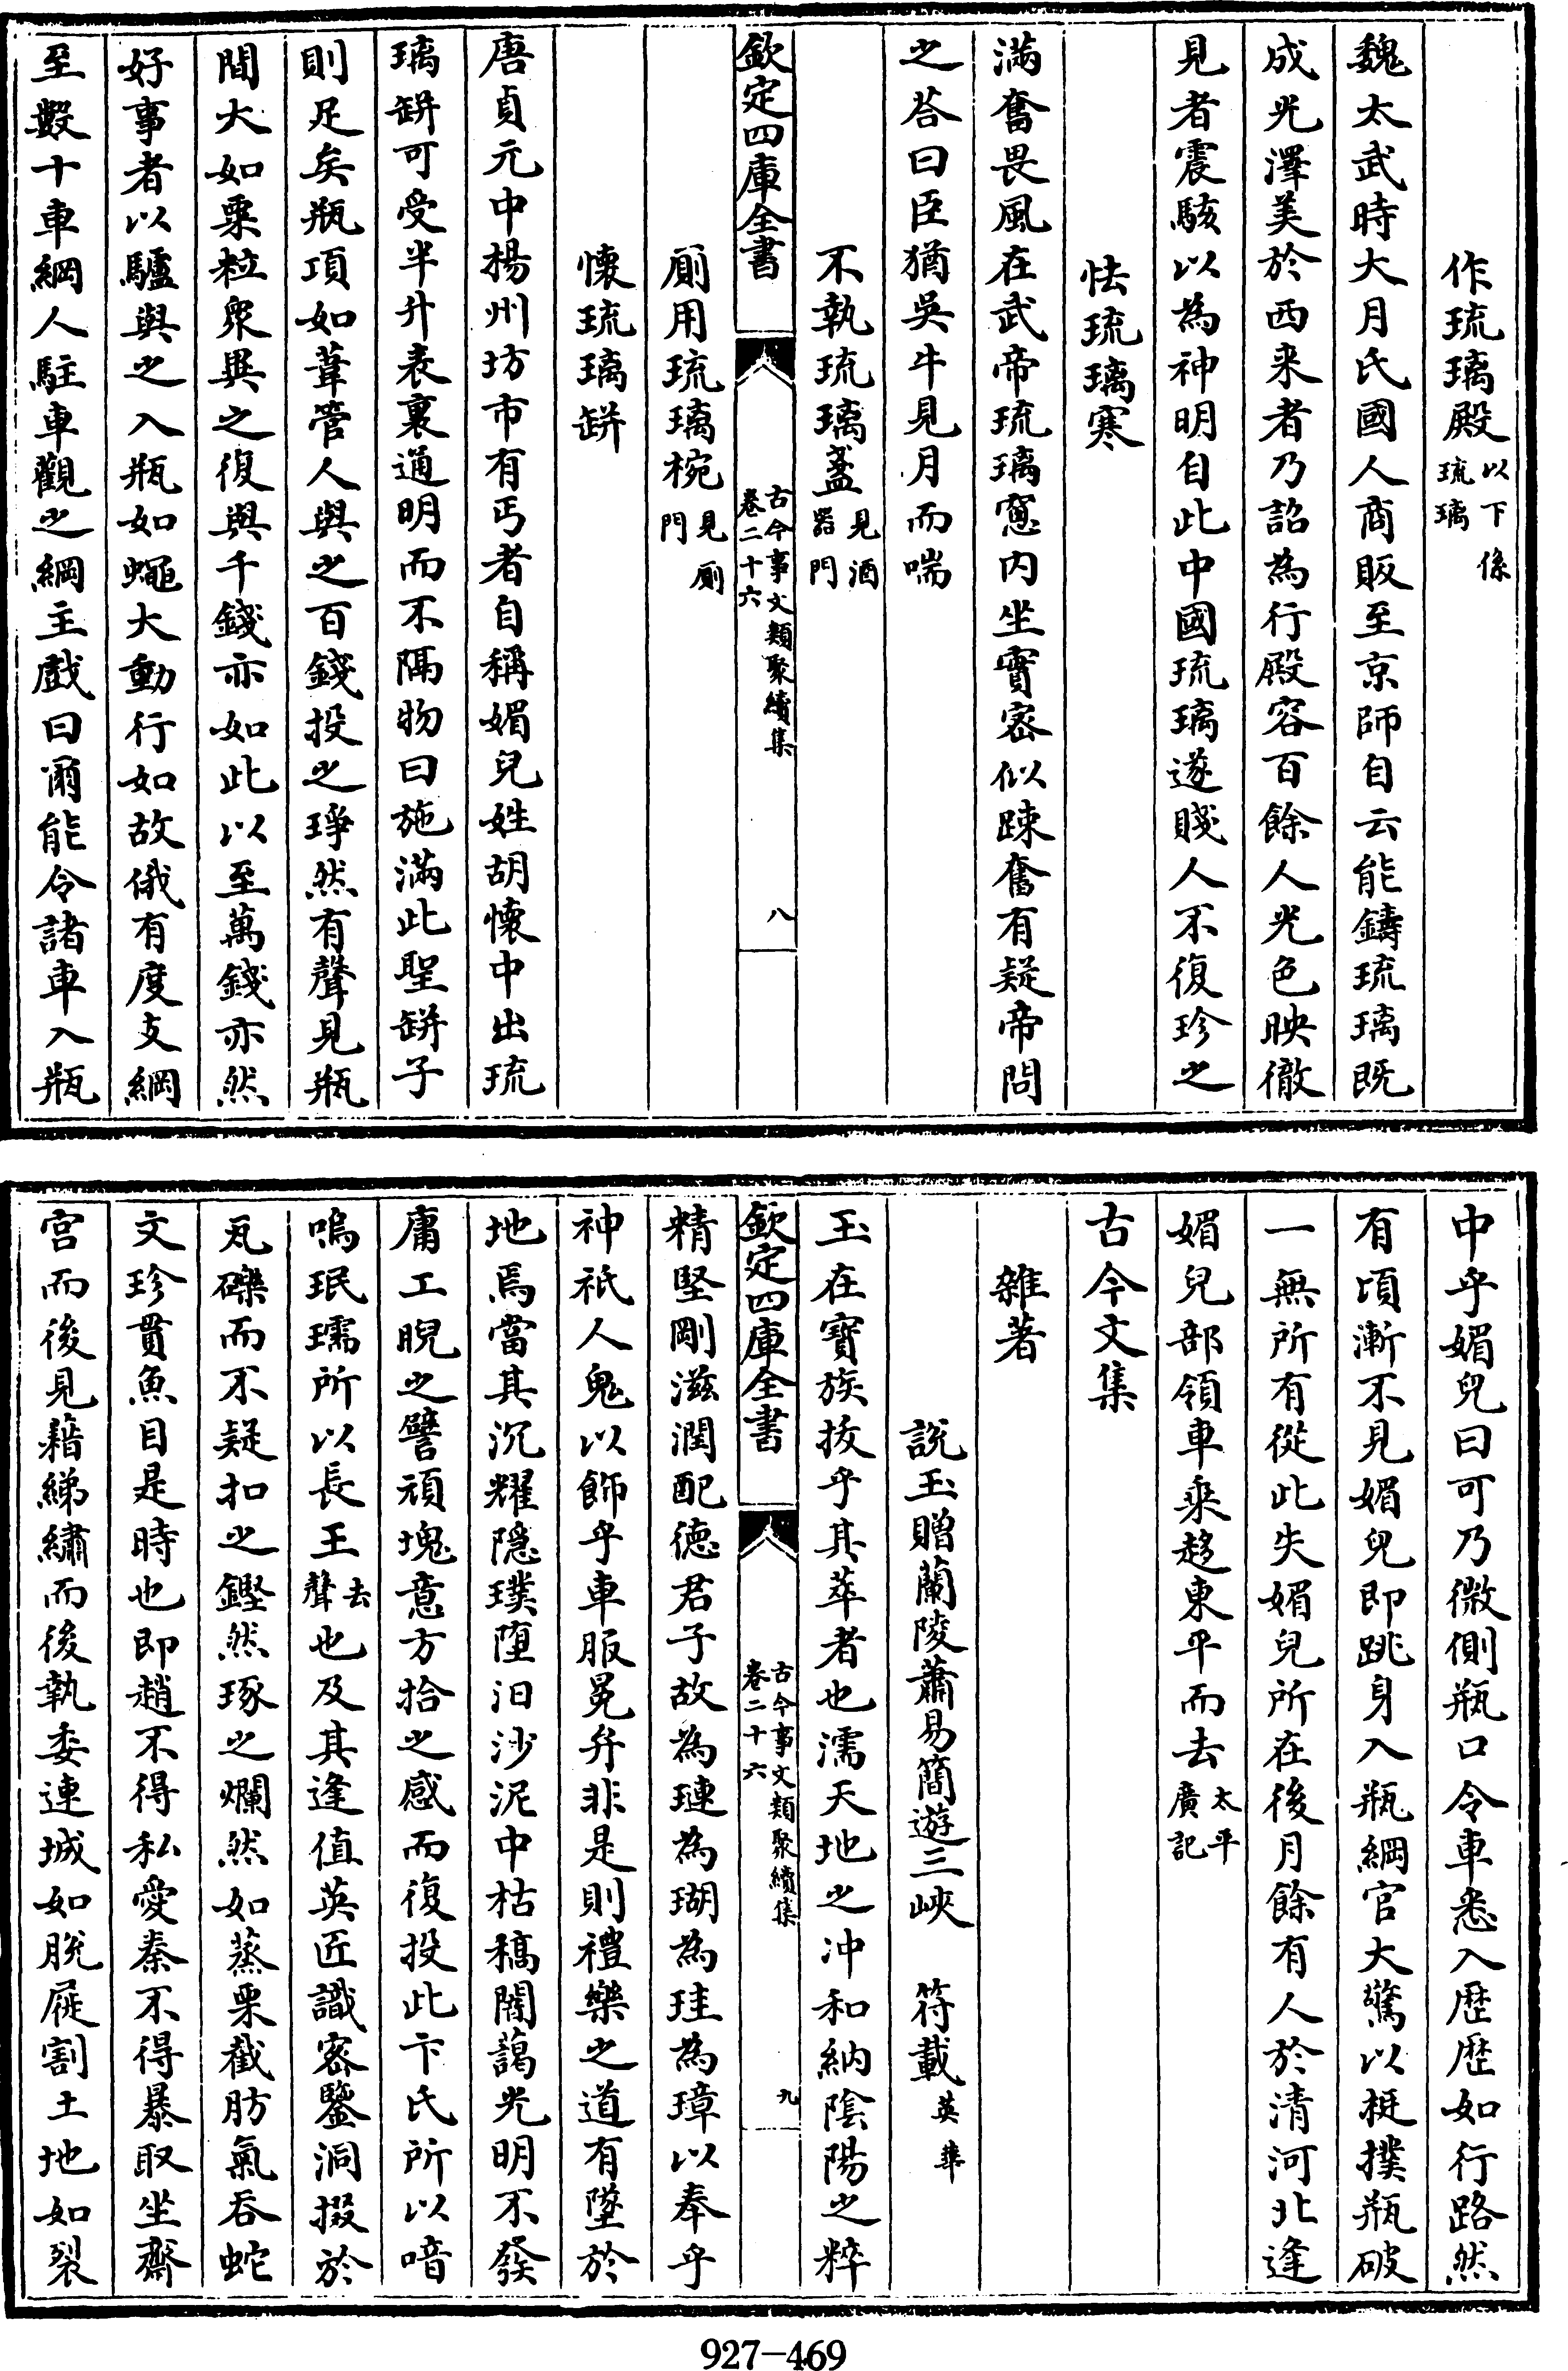 作琉璃殿以下係琉璃
魏太武時大月氏國人商販至京師自云能鑄琉璃既
成光澤美於西来者乃詔為行殿容百餘人光色映徹
見者震駭以為神明自此中國琉璃遂賤人不復珍之
怯琉璃寒
滿奮畏風在武帝琉璃窻内坐實宻似踈奮有疑帝問
之荅曰臣猶吳牛見月而喘
不執琉璃盞見酒器門
欽定四庫全書
古今事文類聚續集
卷二十六
八
厠用琉璃椀見厠門
懐琉璃缾
唐貞元中揚州坊市有丐者自稱媚兒姓胡懐中出琉
璃缾可受半升表裏通明而不隔物曰施滿此聖缾子
則足矣瓶項如葦管人與之百錢投之琤然有聲見瓶
間大如粟粒衆異之復與千錢亦如此以至萬錢亦然
好事者以驢與之入瓶如蠅大動行如故俄有度支綱
至數十車綱人駐車觀之綱主戯曰爾能令諸車入瓶
中乎媚兒曰可乃微側瓶口令車悉入歴歴如行路然
有頃漸不見媚兒即跳身入瓶綱官大驚以梃撲瓶破
一無所有從此失媚兒所在後月餘有人於清河北逢
媚兒部領車乗趍東平而去太平廣記
古今文集
雜著
說玉贈蘭陵蕭易簡遊三峽　符載英華
玉在寳族抜乎其萃者也濡天地之冲和納隂陽之粹
欽定四庫全書
古今事文類聚續集
卷二十六
九
精堅剛滋潤配徳君子故為璉為瑚為珪為璋以奉乎
神祇人鬼以飾乎車服冕弁非是則禮樂之道有墜於
地焉當其沉耀隠璞堕汩沙泥中枯稿闇藹光明不發
庸工睨之譬頑塊意方拾之感而復投此卞氏所以喑
嗚珉瓀所以長王去聲也及其逢值英匠識宻鑒洞掇於
瓦礫而不疑扣之鏗然琢之爛然如蒸栗截肪氣吞蛇
文珍貫魚目是時也即趙不得私愛秦不得暴取坐齋
宮而後見藉綈繡而後執委連城如脱屣割土地如裂
927-469